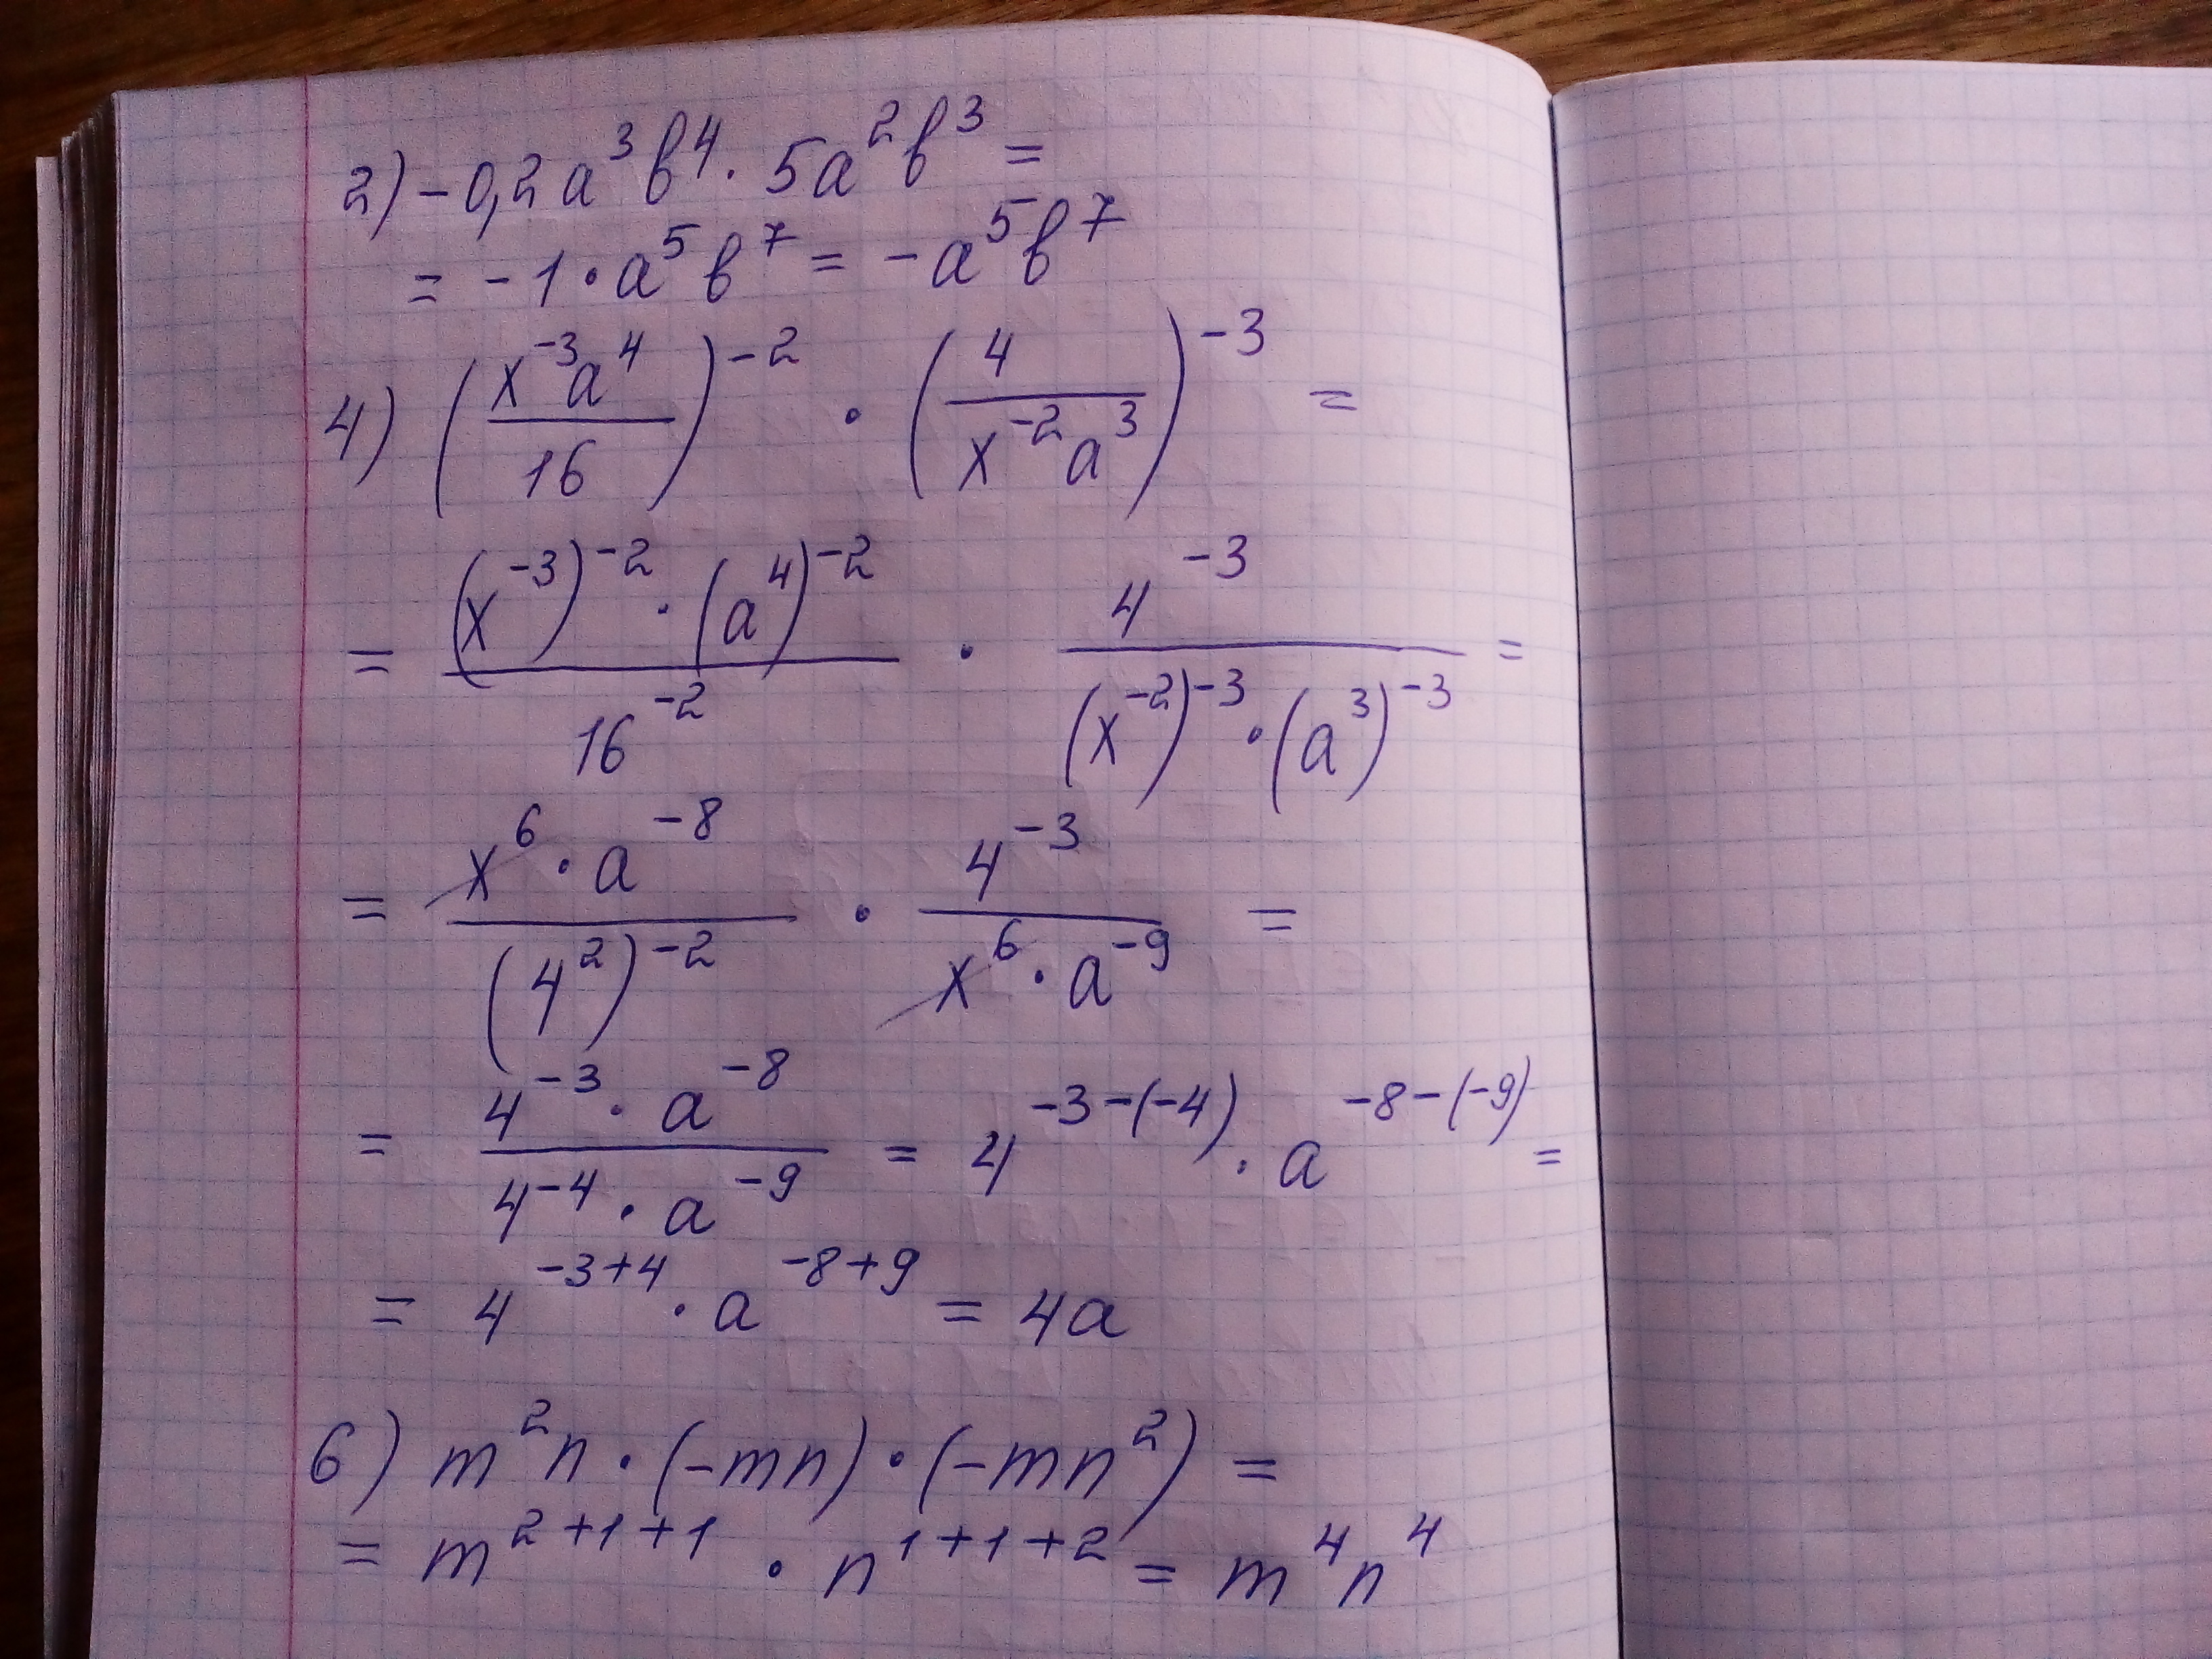 2) -0,2a³b⁴ · 5a²b³ =
= -1 · a⁵b⁷ = -a⁵b⁷
4) (x⁻³a⁴/16)⁻² · (4/(x⁻²a³))⁻³ =
= ((x⁻³)⁻² · (a⁴)⁻²)/16⁻² · 4⁻³/((x⁻²)⁻³ · (a³)⁻³) =
= (x⁶ · a⁻⁸)/(4²)⁻² · 4⁻³/(x⁶ · a⁻⁹) =
= (4⁻³ · a⁻⁸)/(4⁻⁴ · a⁻⁹) = 4⁻³⁻⁽⁻⁴⁾ · a⁻⁸⁻⁽⁻⁹⁾ =
= 4⁻³⁺⁴ · a⁻⁸⁺⁹ = 4a
6) m²n · (-mn) · (-mn²) =
= m²⁺¹⁺¹ · n¹⁺¹⁺² = m⁴n⁴